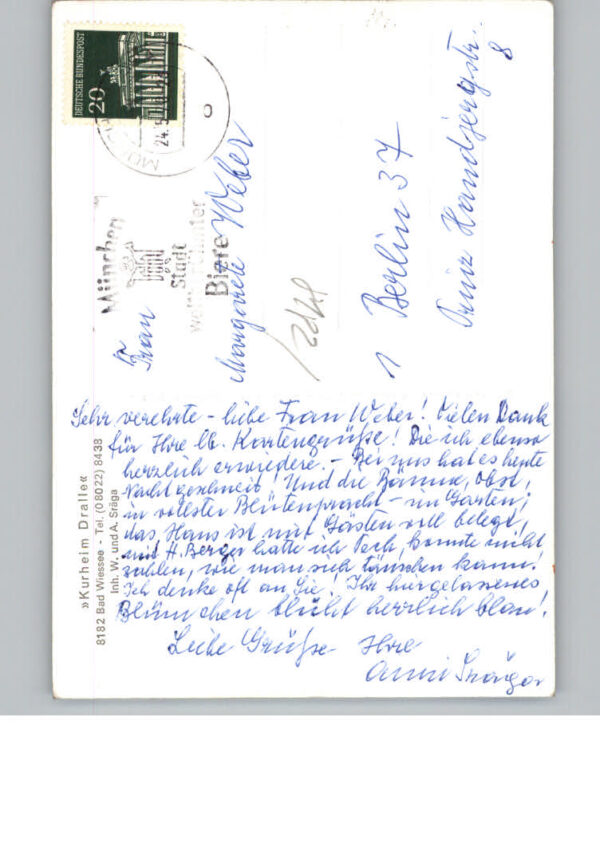 »Kurheim Dralle«
8182 Bad Wiessee - Tel. (08022) 8438
Inh. W. und A. Sräga
DEUTSCHE BUNDESPOST
20
24.5
München
Stadt
weltberühmter
Biere
Frau
Margarete Weber
1 Berlin 37
Prinz Handjerystr.
8
Sehr verehrte - liebe Frau Weber! Vielen Dank
für Ihre lb. Kartengrüße! Die ich ebenso
herzlich erwiedere. - Bei uns hat es heute
Nacht geschneit! Und die Bäume, Obst,
in vollster Blütenpracht - im Garten;
das Haus ist mit Gästen voll belegt,
mit H. Berger hatte ich Pech, konnte nicht
zahlen, wie man sich täuschen kann!
Ich denke oft an Sie! Ihr hiergelassenes
Blümchen blüht herrlich blau!
Liebe Grüße Ihre
Anni Sräga